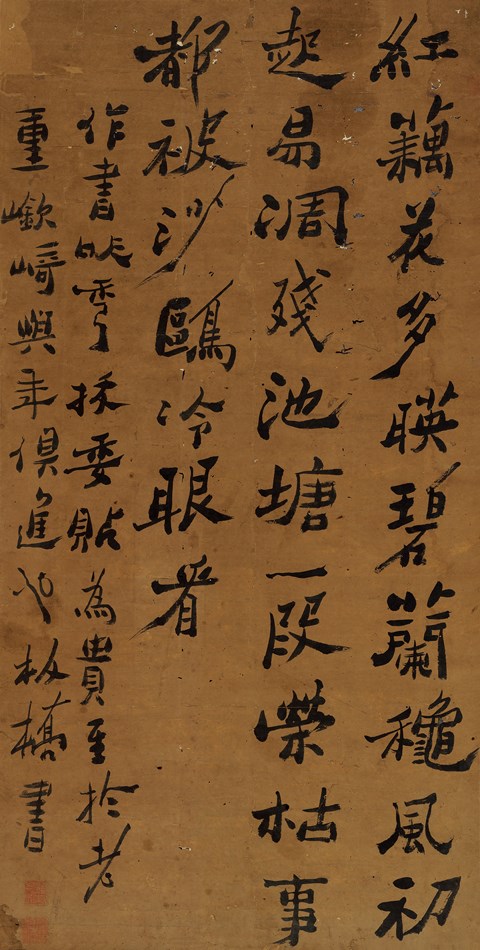 紅藕花多暎碧蘭穐風初
起易凋殘池塘一段榮枯事
都被沙鷗冷眼看
作書委貼為貴至於老
重嶔崎與年俱進也板橋書